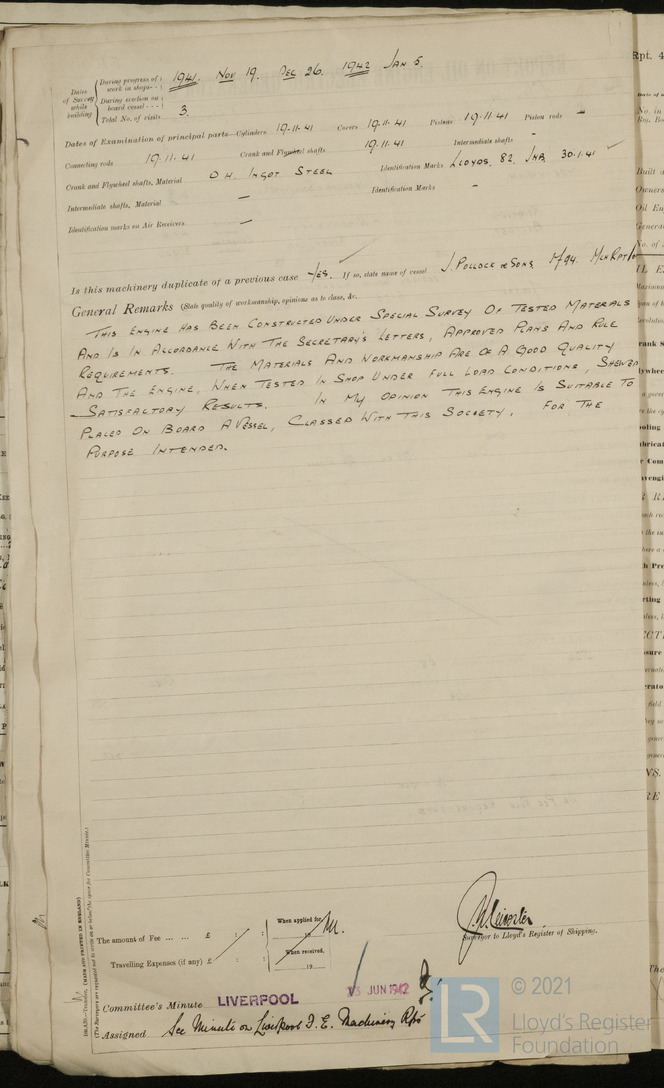 Dates of Survey while building
During progress of work in shops - - 1941. Nov 19. Dec 26. 1942 Jan 5.
During erection on board vessel - - -
Total No. of visits 3.
Dates of Examination of principal parts—Cylinders 19-11-41 Covers 19.11.41 Pistons 19.11.41 Piston rods —
Connecting rods 19.11.41 Crank and Flywheel shafts 19.11.41 Intermediate shafts —
Crank and Flywheel shafts, Material O.H. INGOT STEEL Identification Marks LLOYDS. 82. 30.1.41
Intermediate shafts, Material — Identification Marks —
Identification marks on Air Receivers —
Is this machinery duplicate of a previous case YES. If so, state name of vessel J. POLLOCK & SONS.
General Remarks (State quality of workmanship, opinions as to class, &c.
THIS ENGINE HAS BEEN CONSTRUCTED UNDER SPECIAL SURVEY OF TESTED MATERIALS
AND IS IN ACCORDANCE WITH THE SECRETARY'S LETTERS, APPROVED PLANS AND RULE
REQUIREMENTS. THE MATERIALS AND WORKMANSHIP ARE OF A GOOD QUALITY
AND THE ENGINE, WHEN TESTED IN SHOP UNDER FULL LOAD CONDITIONS, SHEWED
SATISFACTORY RESULTS. IN MY OPINION THIS ENGINE IS SUITABLE TO
PLACED ON BOARD A VESSEL, CLASSED WITH THIS SOCIETY, FOR THE
PURPOSE INTENDED.
The amount of Fee ... ... £ : : When applied for, 19
Travelling Expenses (if any) £ : : When received, 19
Surveyor to Lloyd's Register of Shipping.
Committee's Minute LIVERPOOL JUN 1942
Assigned See Minute on Liverpool F.E. Machinery Rpt
LR © 2021
Lloyd's Register
Foundation